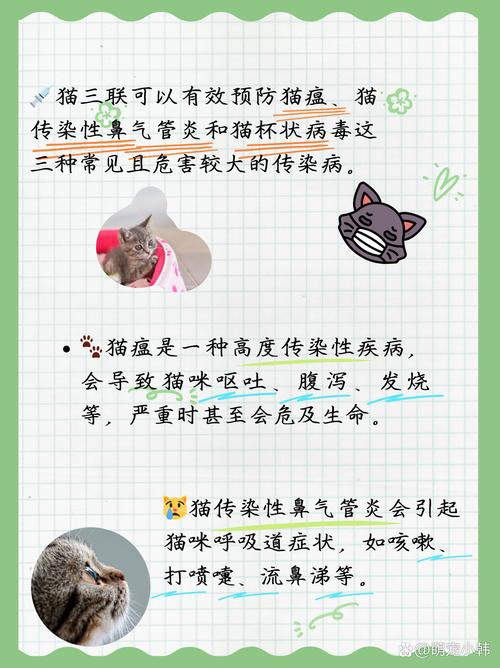 猫三联可以有效预防猫瘟、猫
传染性鼻气管炎和猫杯状病毒这
三种常见且危害较大的传染病。
猫瘟是一种高度传染性疾病，
会导致猫咪呕吐、腹泻、发烧
等，严重时甚至会危及生命。
猫传染性鼻气管炎会引起
猫咪呼吸道症状，如咳嗽、
打喷嚏、流鼻涕等。
@萌宠小韩